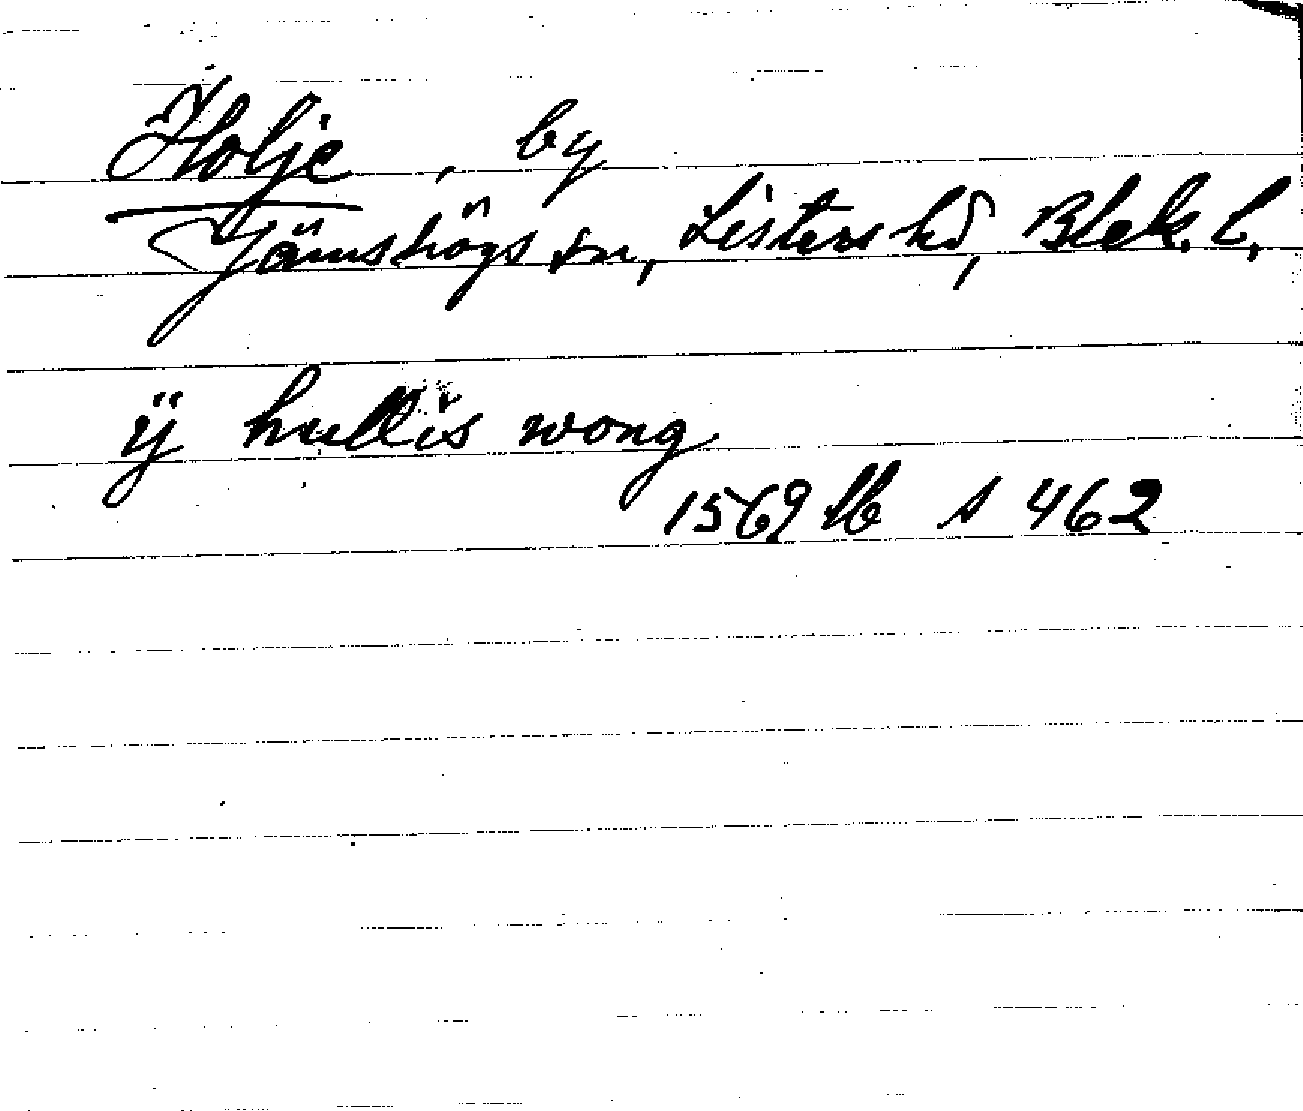 Holje, by
Jämshögs sn, Listers hd, Blek. l.
ÿ hullis wong
1569 lb s 462